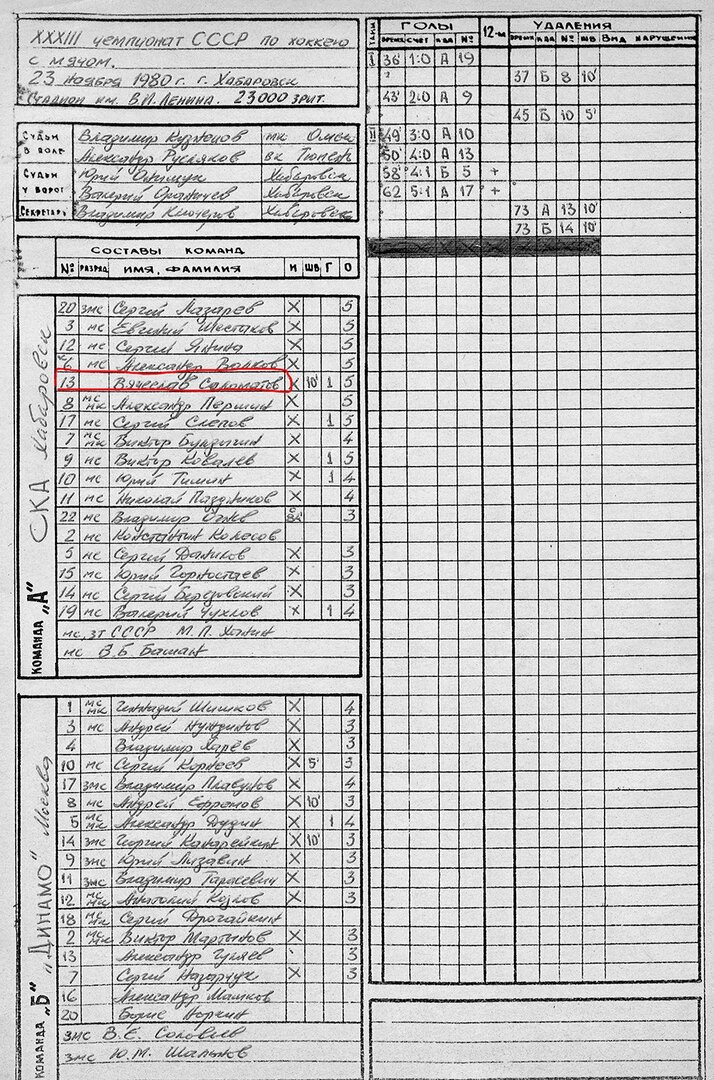 XXXIII чемпионат СССР по хоккею
с мячом.
23 ноября 1980 г. г. Хабаровск
Стадион им. В.И. Ленина. 23000 зрит.
Судьи в поле Владимир Кузнецов мк Омск
Александр Русляков вк Тюмень
Судьи у ворот Юрий Хабаровск
Валерий Хабаровск
Секретарь Владимир Хабаровск
СОСТАВЫ КОМАНД
№ РАЗРЯД ИМЯ, ФАМИЛИЯ И ШВ Г О
КОМАНДА „А" СКА Хабаровск
20 змс Сергей Лазарев X 5
3 мс Евгений Шестаков X 5
12 мс Сергей Янина X 5
6 мс Александр Волков X 5
13 Вячеслав Саломатов X 10' 1 5
8 мсмк Александр Першин X 5
17 мс Сергей Слепов X 1 5
7 мсмк Виктор X 4
9 мс Виктор Ковалев X 1 5
10 мс Юрий Тишин X 1 4
11 мс Николай Паздников X 4
22 мс Владимир 3
2 мс Константин Колесов
5 мс Сергей Данилов X 3
15 мс Юрий Горностаев X 3
14 мс Сергей Березовский X 3
19 мс Валерий Чухлов X 1 4
мс, зт СССР М.П. Ханин
мс В.Б. Башан
КОМАНДА „Б" „ДИНАМО" Москва
1 мсмк Геннадий Шишков X 4
3 мс Андрей Нуждинов X 3
4 Владимир Харёв X 3
10 мс Сергей Корнеев X 5' 3
17 змс Владимир Плавунов X 4
8 мс Андрей Ефремов X 10' 3
5 мсмк Александр Дудин X 1 4
14 змс Георгий Канарейкин X 10' 3
9 змс Юрий Лизавин X 3
11 змс Владимир Тарасевич X 3
12 мсмк Анатолий Козлов X 3
18 мсмк Сергей Дрогайкин
2 мсмк Виктор Мартынов X 3
13 Александр Гуляев 3
7 Сергей Назарчук X 3
16 Александр Машков
20 Борис Норкин
змс В.Е. Соловьев
змс Ю.М. Шальнов
ТАЙМ ГОЛЫ 12-м УДАЛЕНИЯ
ВРЕМЯ СЧЕТ К-ДА № ВРЕМЯ К-ДА № ШВ ВИД НАРУШЕНИЯ
I 36' 1:0 А 19
37 Б 8 10'
43' 2:0 А 9
45 Б 10 5'
II 49' 3:0 А 10
50' 4:0 А 13
58' 4:1 Б 5 +
62 5:1 А 17 +
73 А 13 10'
73 Б 14 10'